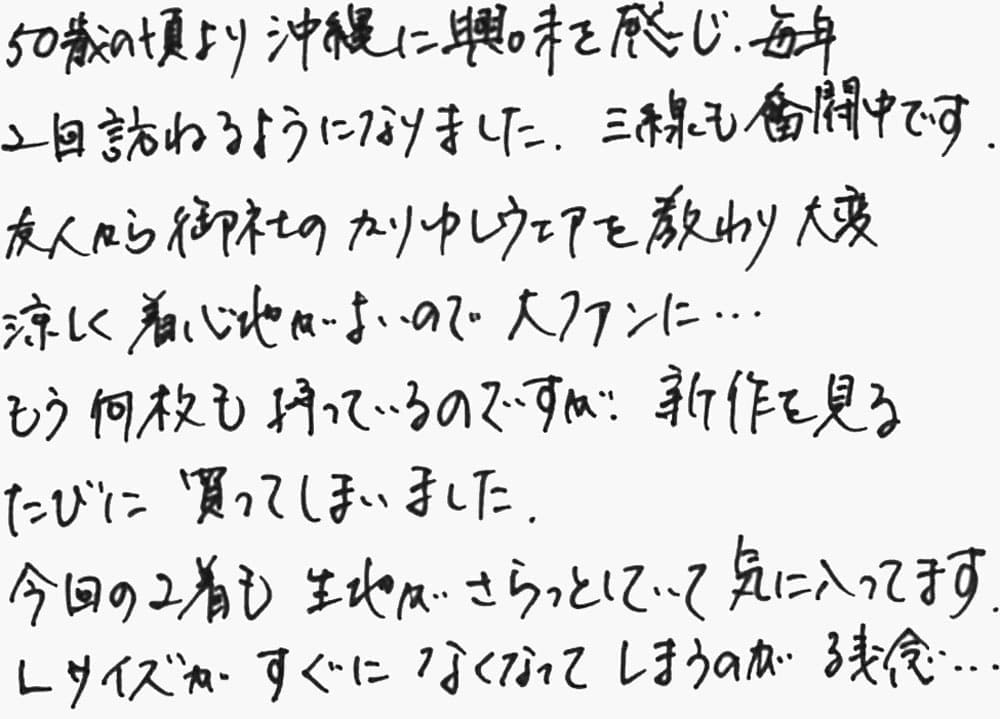 50歳の頃より沖縄に興味を感じ.毎年
2回訪ねるようになりました. 三線も奮闘中です.
友人から御社のカリユシウェアを教わり大変
涼しく着心地がよいので大ファンに…
もう何枚も持っているのですが 新作を見る
たびに買ってしまいました.
今回の2着も生地がさらっとしていて気に入ってます.
Lサイズがすぐになくなってしまうのが残念…